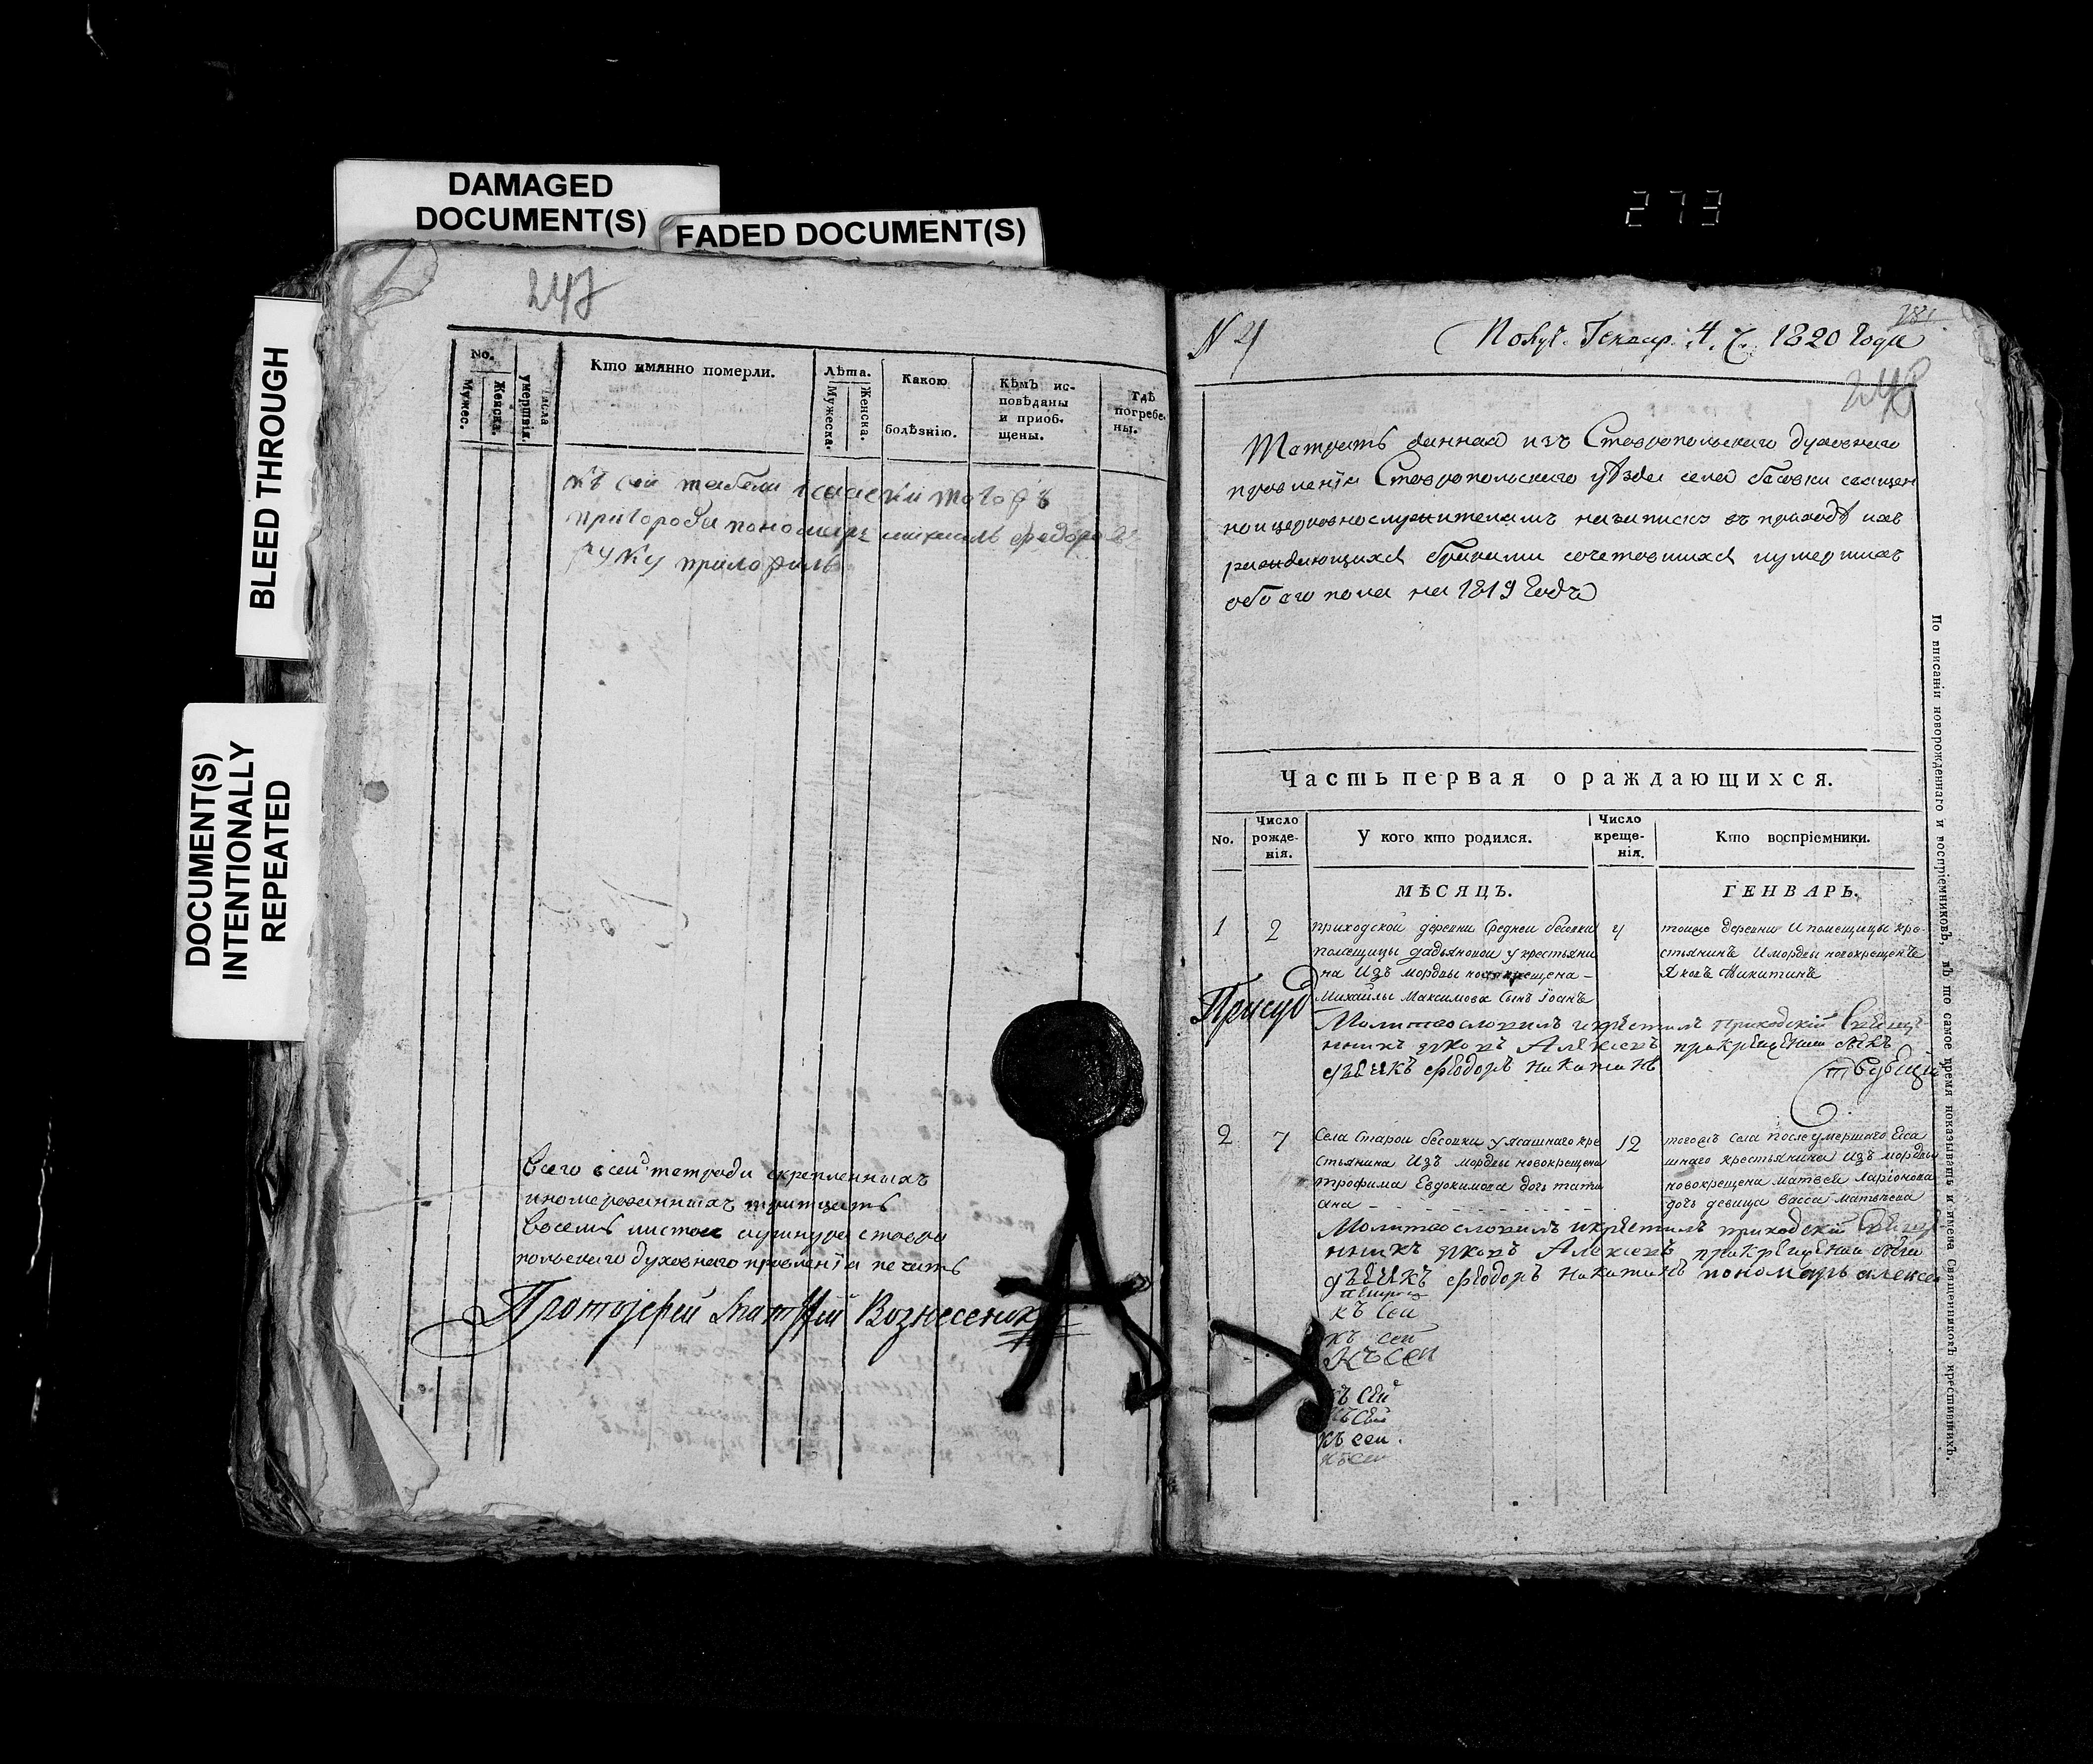 DAMAGED
DOCUMENT(S)
FADED DOCUMENT(S)
BLEED THROUGH
DOCUMENT(S)
INTENTIONALLY
REPEATED
273
247
No.
Мужес.
Женска.
Числа
умершвія.
Кто имянно померли.
Лѣта.
Мужеска.
Женска.
Какою
болѣзнію.
Кѣмъ ис-
повѣданы
и приоб-
щены.
Гдѣ
погребе-
ны.
къ сей табели
пригорода пономарь федоровъ
руку приложилъ
Всего в сей тетради скрепленныхъ
и номерованныхъ тритцать
восемь листов и шнура ставро
польскаго духовнаго правленія печать
Протоіерей Матфей Вознесенск
N 4
Получ. Генвар. 4. ч. 1820 года
281
248
Тетрать данная изъ Ставропольскаго духовнаго
правленія Ставропольскаго уѣзда села бесовки священ
ноцерковнослужителямъ на записку въ приходѣ ихъ
раждающихся браками сочетавшихся и умершихъ
обоего пола на 1819 годъ
Часть первая о раждающихся.
No.
Число
рожде-
нія.
У кого кто родился.
Число
креще-
нія.
Кто воспріемники.
МѢСЯЦЪ.
ГЕНВАРЬ.
1
2
приходской деревни Средней бесовки
помещицы дадьяновой у крестьяни
на Изъ мордвы новокрещена -
Михайлы Максимова Сынъ Іоанъ
4
тойже деревни И помещицы кре-
стьянинъ И мордвы новокрещенъ
Яковъ Никитинъ
Присуд
Молитвословилъ и крестилъ приходскій Свящ
нникъ Іяковъ Алексеевъ прикрещении былъ
дьячкъ Феодоръ Никитинъ
ствующи
2
7
Села Старой бесовки у ясашнаго кре
стьянина Изъ мордвы новокрещена
трофима Евдокимова дочь тати
ана
12
тогожъ села после умершаго Яса
шнаго крестьянина Изъ мордвы
новокрещена матвея Ларіонова
дочь девица васса матвеева
Молитвословилъ и крестилъ приходскій Свящ
нникъ Іяковъ Алексеевъ прикрещении были
дьячкъ Феодоръ Никитинъ пономарь алексей
петров
къ сей
къ сей
Къ сей
къ сей
къ сей
къ сей.
къ сей
По вписаніи новорожденнаго и воспріемниковъ, въ то самое время показывать и имена Священниковъ крестившихъ.